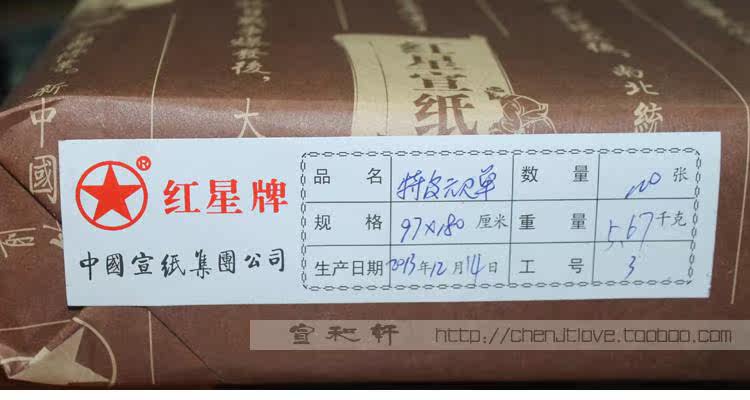 红星宣纸
中國
大
南北統
红星牌®
中國宣纸集團公司
品 名 特皮六尺单 数 量 100 张
规 格 97×180 厘米 重 量 5.67 千克
生产日期 2013 年 12 月 14 日 工 号 3
宣和轩 http://chenjtlove.taobao.com